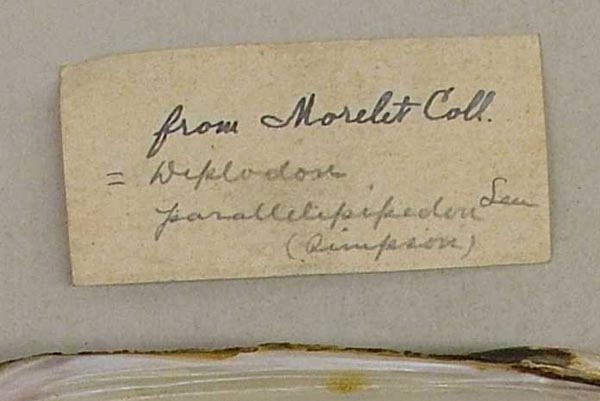 from Morelet Coll.
= Diplodon
parallelipipedon Lea
(Simpson)